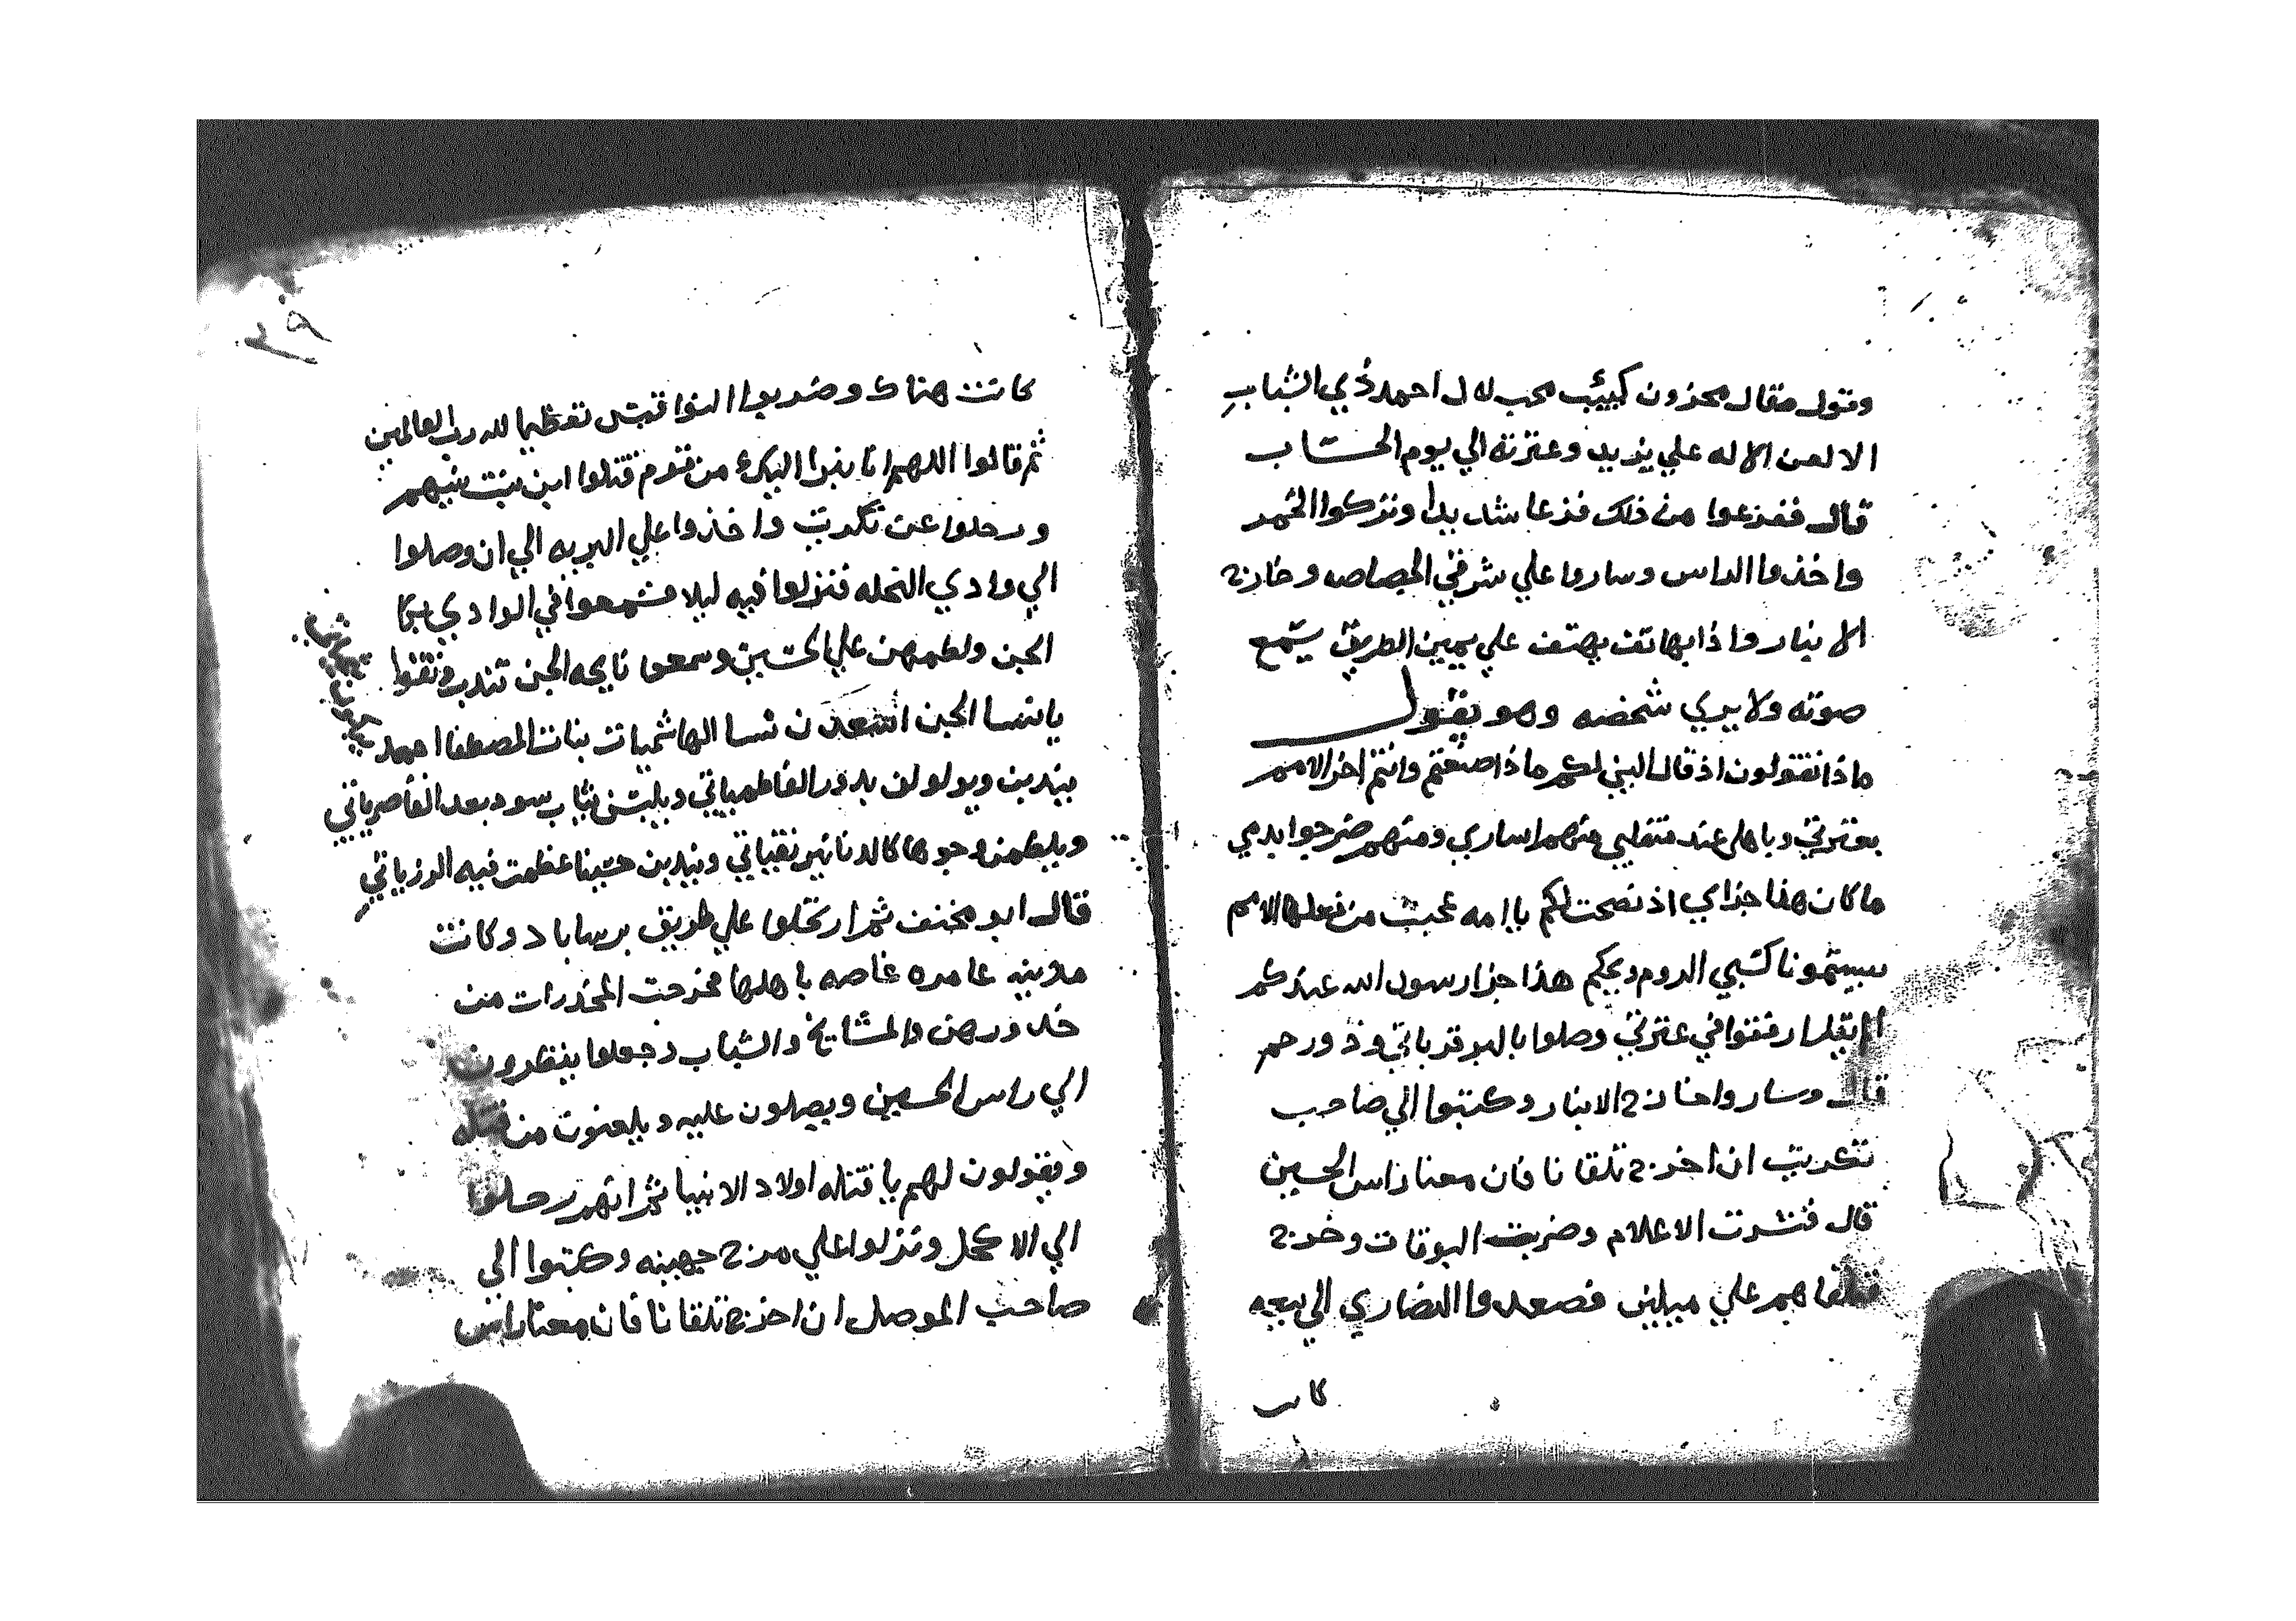 وتول مقال محزون كييئب محب له ل احمد ذي الشباب
الا لعن الاله علي يزيد وعترته الي يوم الحساب
قال ففزعوا من ذلك فزعا شديدا وتركوا الخمر
واخذوا الراس وساروا علي شرقي الحصاصه وخازج
الانبار واذا بهاتف يهتف علي يمين الطريق يسمع
صوته ولا يري شخصه وهو يقول
ماذا تقولون اذ قال النبي لكم ماذا صنعتم وانتم اخر الامم
بعترتي وباهلي عند متقلبي منهم اساري ومنهم ضرجوا بدمي
ما كان هذا جزاي اذ نصحت لكم يا امه عجبت من فعلها الامم
سبيتمونا كسبي الروم ويحكم هذا جزا رسول الله عندكم
ارفقوا في عترتي وصلوا بالبر قرباتي وذو رحم
قال وساروا الانبار وكتبوا الي صاحب
تكريت ان اخرج تلقانا فان معنا راس الحسين
قال فنشرت الاعلام وضربت البوقات وخرج
فتلقاهم علي ميلين فصعدوا النصاري الي بيعه
كانت
٣٩
كانت هناك وضربوا النواقيس تعظيما لله رب العالمين
ثم قالوا اللهم انا نبرا اليك من قوم قتلوا ابن بنت نبيهم
ورحلوا عن تكريت واخذوا علي البريه الي ان وصلوا
الي وادي النخله فنزلوا فيه ليلا فسمعوا في الوادي بكا
الجن ولطمهن علي الحسين وسمعوا نايحه الجن تندب وتقول
يا نسا الجن اسعدن نسا الهاشميات بنات المصطفا احمد
يندبن ويولولن بدور الفاطمياتي ويلبسن ثياب سود بعد القاصرياتي
ويلطمن وجوها كالدنانير نقياتي ويندبن حسينا عظمت فيه الرزياتي
قال ابو مخنف ثم ارتحلوا علي طريق برساباد وكانت
مدينه عامره غاصه باهلها فخرجت المخدرات من
خدورهن والمشايخ والشباب وجعلوا ينظرون
الي راس الحسين ويصلون عليه ويلعنون من قتله
ويقولون لهم يا قتله اولاد الانبيا ثم انهم رحلوا
الي الاكحل ونزلوا علي مرج جهينه وكتبوا الي
صاحب الموصل ان اخرج تلقانا فان معنا راس